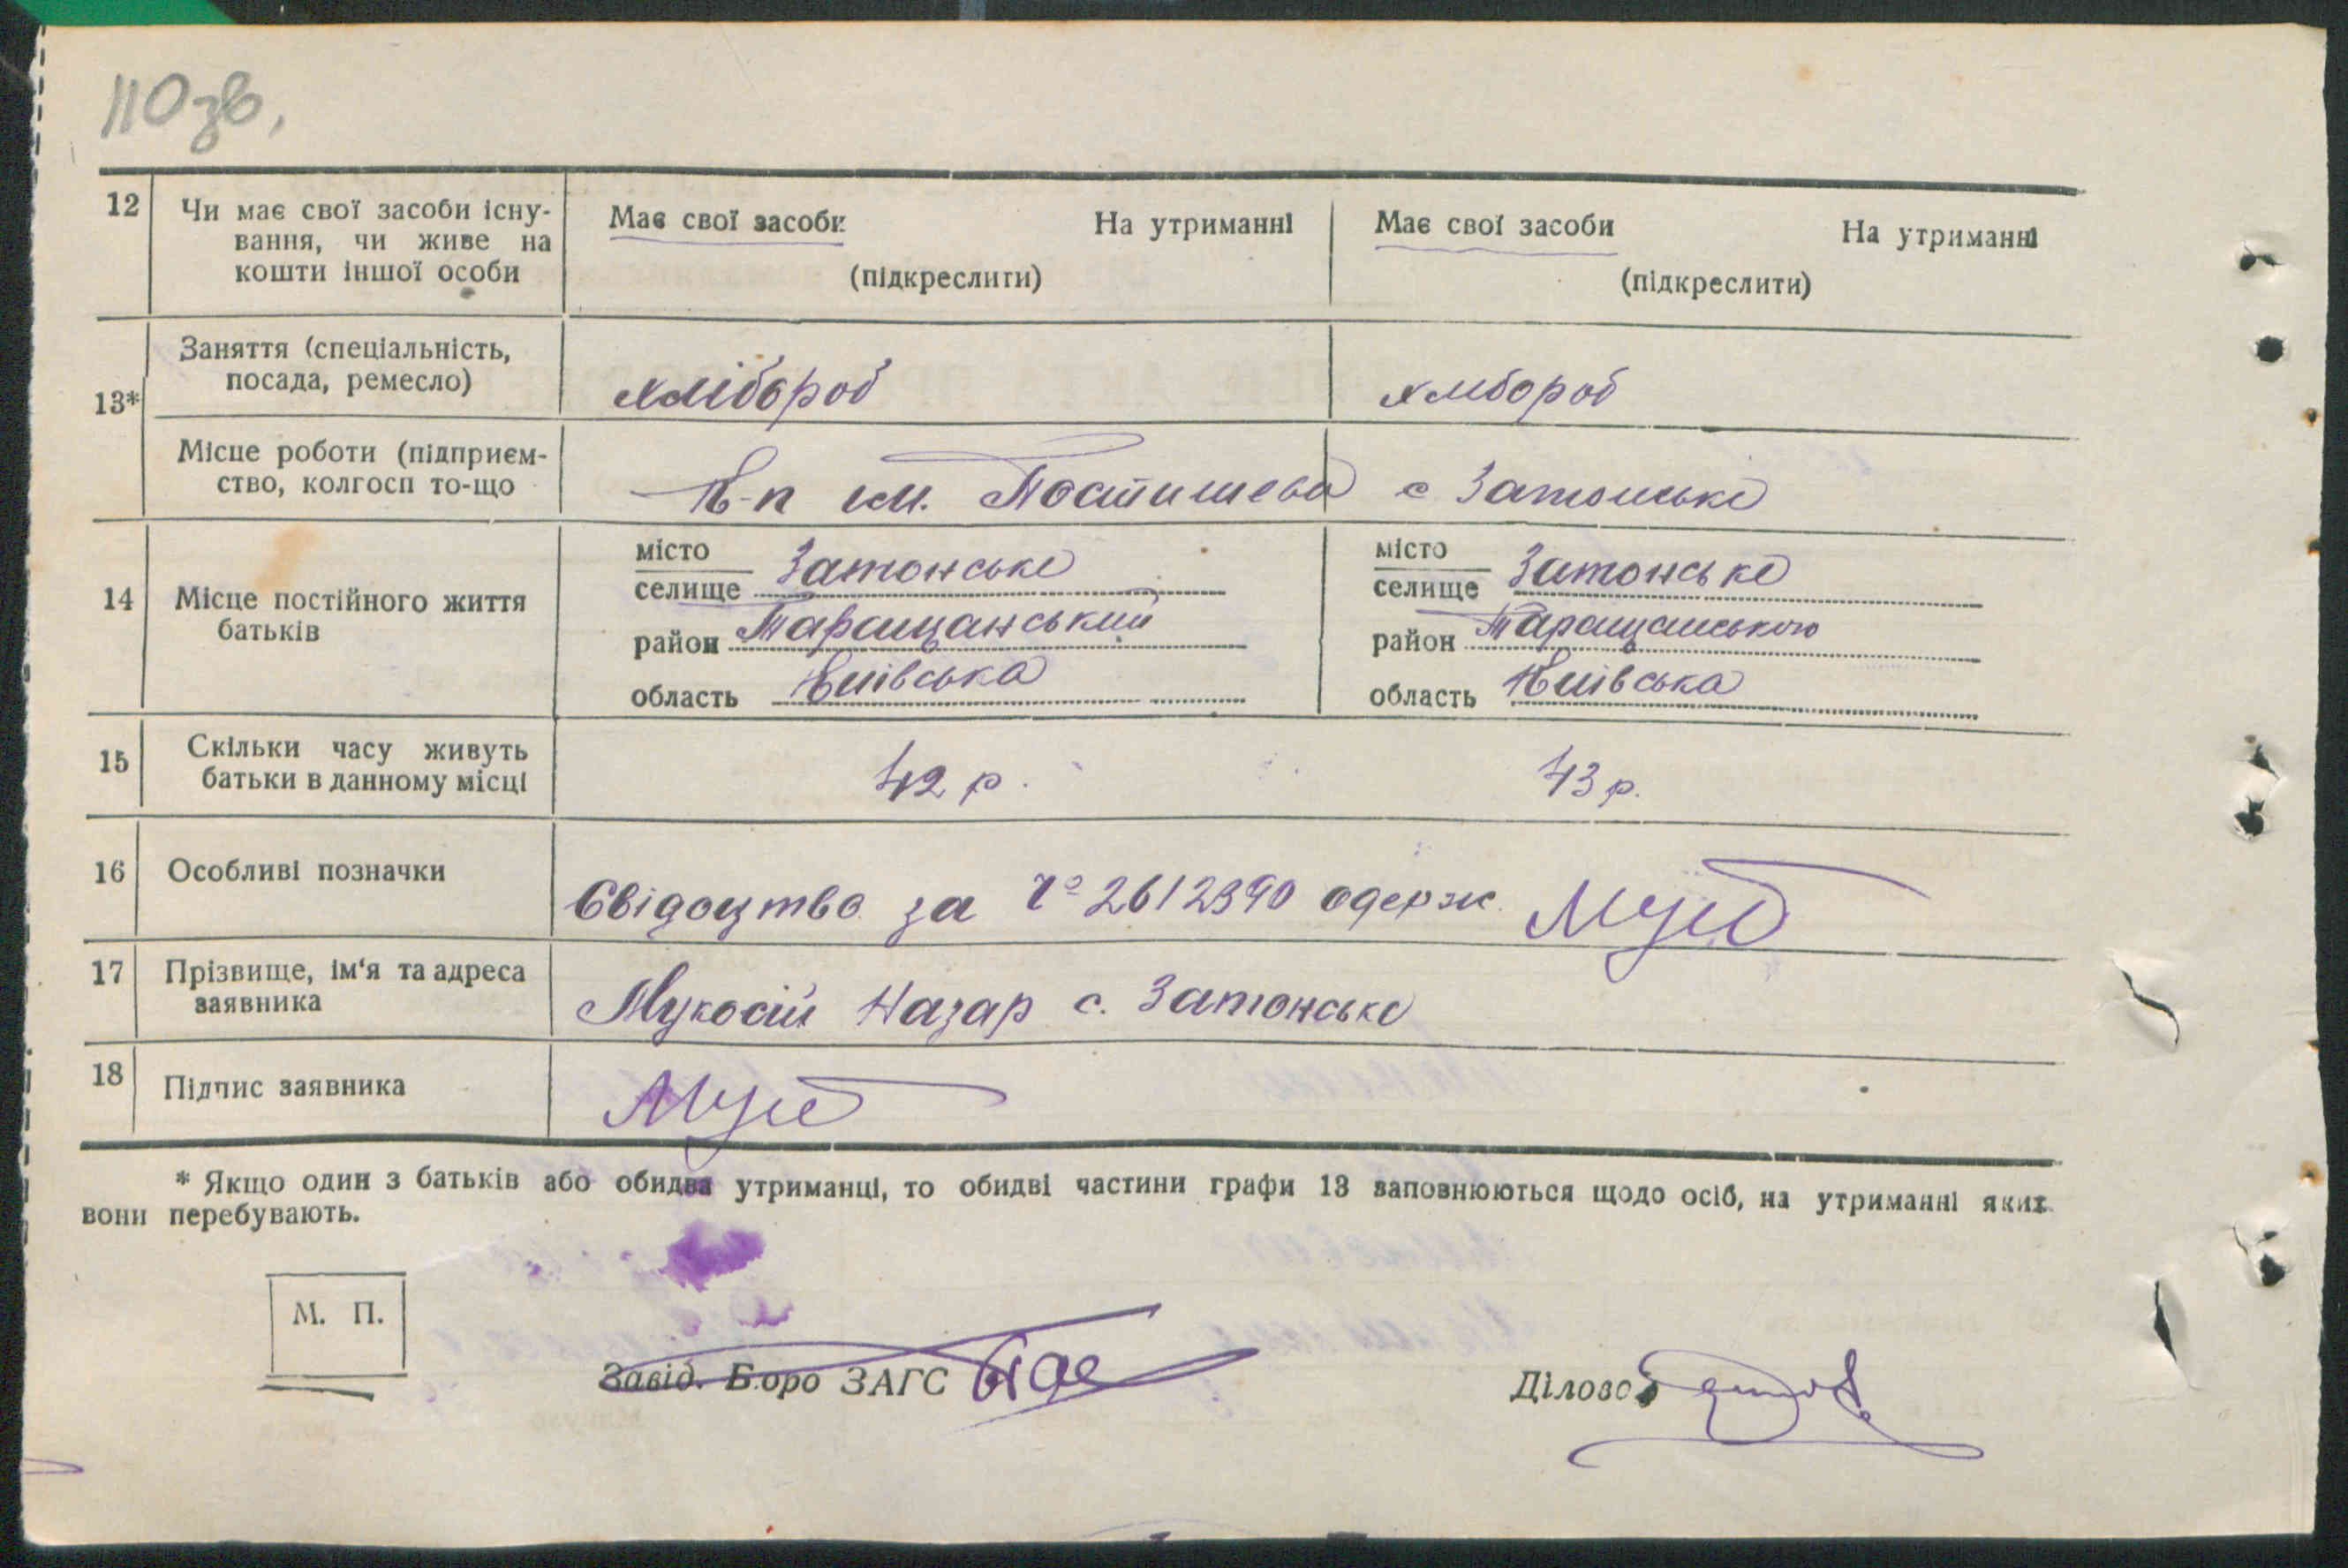 110 зв,
12 Чи має свої засоби існу- Має свої засоби На утриманні Має свої засоби На утриманні
вання, чи живе на
кошти іншої особи (підкреслити) (підкреслити)
13* Заняття (спеціальність, хлібороб хлібороб
посада, ремесло)
Місце роботи (підприєм- К-п ім. Постишева с Затонське
ство, колгосп то-що
14 Місце постійного життя батьків
місто Затонське місто Затонське
селище селище
район Таращанський район Таращанського
область Київська область Київська
15 Скільки часу живуть 42 р. 43 р.
батьки в данному місці
16 Особливі позначки Свідоцтво за № 2612390 одерж.
17 Прізвище, ім'я та адреса Мукосій Назар с. Затонське
заявника
18 Підпис заявника
* Якщо один з батьків або обидва утриманці, то обидві частини графи 13 заповнюються щодо осіб, на утриманні яких
вони перебувають.
М. П.
Завід. Бюро ЗАГС Діловод